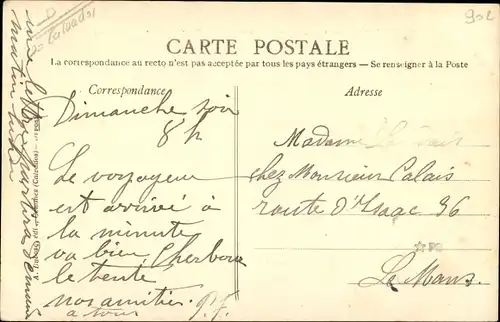 Calvados
902
CARTE POSTALE
La correspondance au recto n'est pas acceptée par tous les pays étrangers. — Se renseigner à la Poste
Correspondance
Adresse
Dimanche soir
8 h
Le voyageur
est arrivé à
la minute
va bien Cherbourg
le tente
nos amitiés
a tous P.F.
Madame
chez Monsieur Calais
route d'Isaac 36
Le Mans
une lettre partira demain
matin